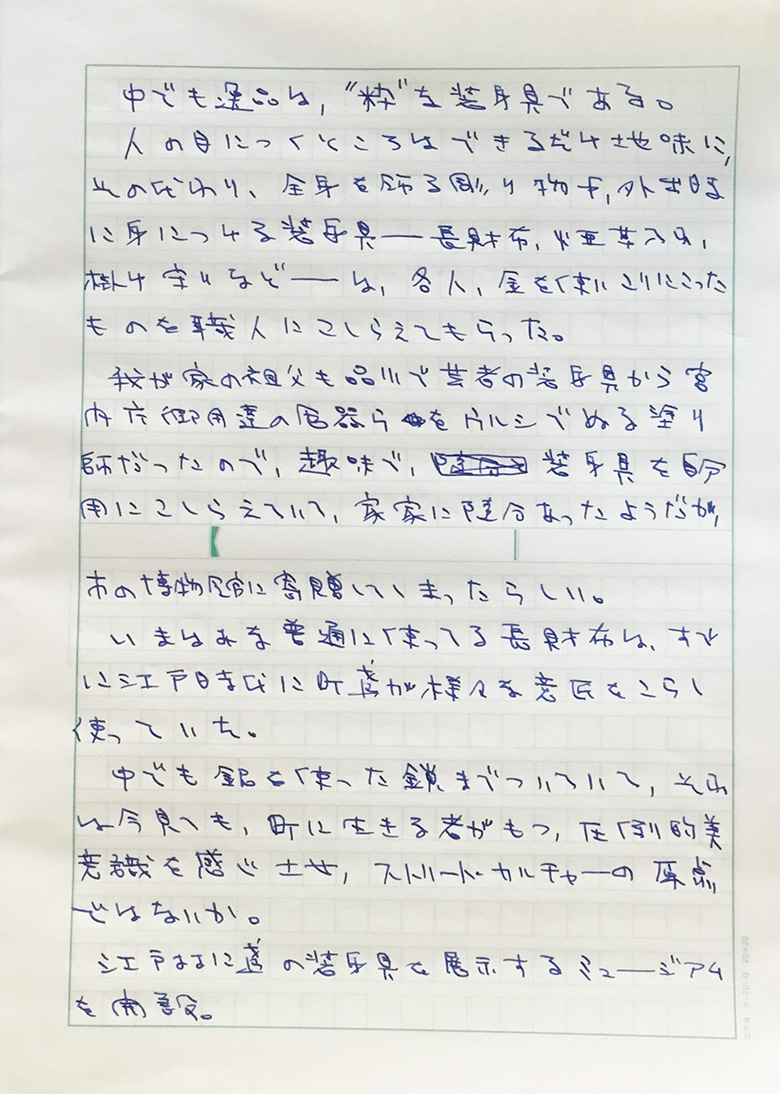 中でも逸品は，"粋"な装身具である。
人の目につくところはできるだけ地味に，
その代わり、全身を飾る彫り物や，外出時
に身につける装身具——長財布，煙草入れ，
掛け守りなど——は，各人，金を使いこりにこった
ものを職人にこしらえてもらった。
我が家の祖父も品川で芸者の装身具から宮
内庁御用達の居器らをウルシでぬる塗り
師だったので，趣味で，装身具を自分
用にこしらえていて，家家に随分あったようだが，
市の博物館に寄贈してしまったらしい。
いまはみな普通に使ってる長財布は、すで
に江戸時代に町鳶が様々な意匠をこらし
使っていた。
中でも銀を使った鎖までついていて，それ
は今見ても，町に生きる者がもつ，圧倒的美
意識を感じさせ，ストリート・カルチャーの原点
ではないか。
江戸はなに鳶の装身具を展示するミュージアム
を開設。